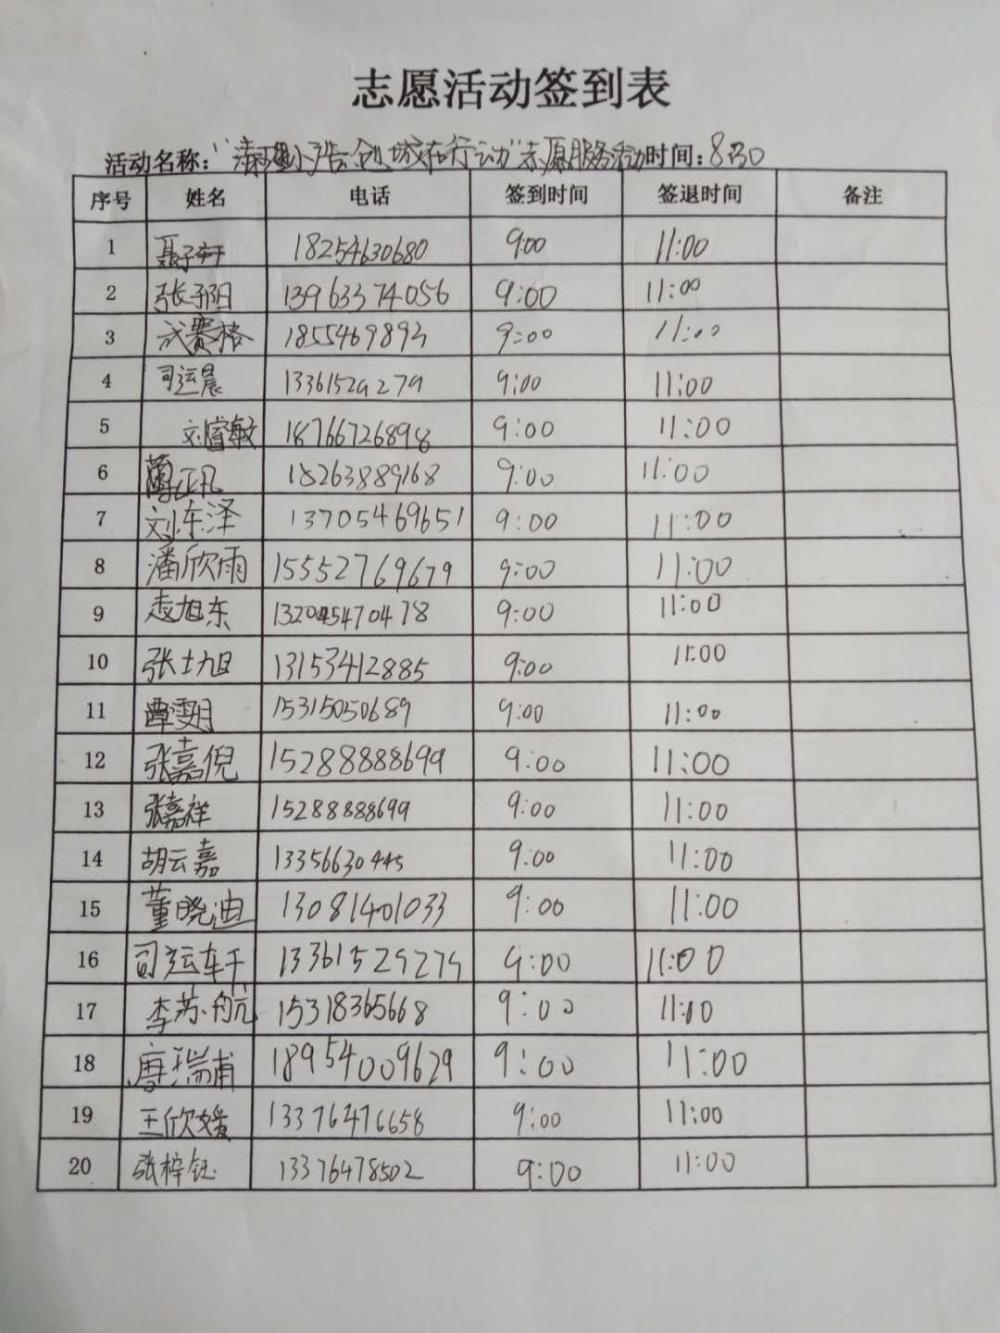 志愿活动签到表
活动名称："清理小广告,创城在行动"志愿服务活动时间:8:30
序号 姓名 电话 签到时间 签退时间 备注
1 聂子轩 18254630680 9:00 11:00
2 张子阳 13963374056 9:00 11:00
3 成赛格 1855469893 9:00 11:00
4 司运晨 13361529279 9:00 11:00
5 刘睿敏 18766726898 9:00 11:00
6 正凡 18263889168 9:00 11:00
7 刘东泽 13705469651 9:00 11:00
8 潘欣雨 15552769679 9:00 11:00
9 旭东 9:00 11:00
10 张 13153412885 9:00 11:00
11 15315050689 9:00 11:00
12 张嘉倪 15288888699 9:00 11:00
13 张嘉祥 15288888699 9:00 11:00
14 胡云嘉 13356630445 9:00 11:00
15 董晓迪 13081401033 9:00 11:00
16 司运轩 13361529279 9:00 11:00
17 李苏航 15318365668 9:00 11:00
18 唐瑞甫 18954009629 9:00 11:00
19 王欣媛 13376476658 9:00 11:00
20 张梓钰 13376478502 9:00 11:00